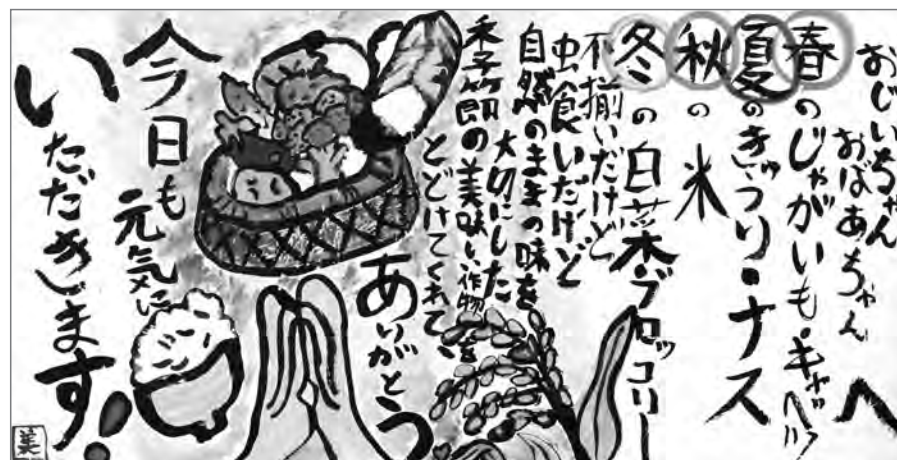 おじいちゃん
おばあちゃんへ
春のじゃがいも・キャベツ
夏のきゅうり・ナス
秋の米
冬の白菜・ブロッコリー
不揃いだけど
虫食いだけど
自然のままの味を
大切にした
季節の美味しい作物を
とどけてくれて、
ありがとう
今日も
元気に
いただきます!
美